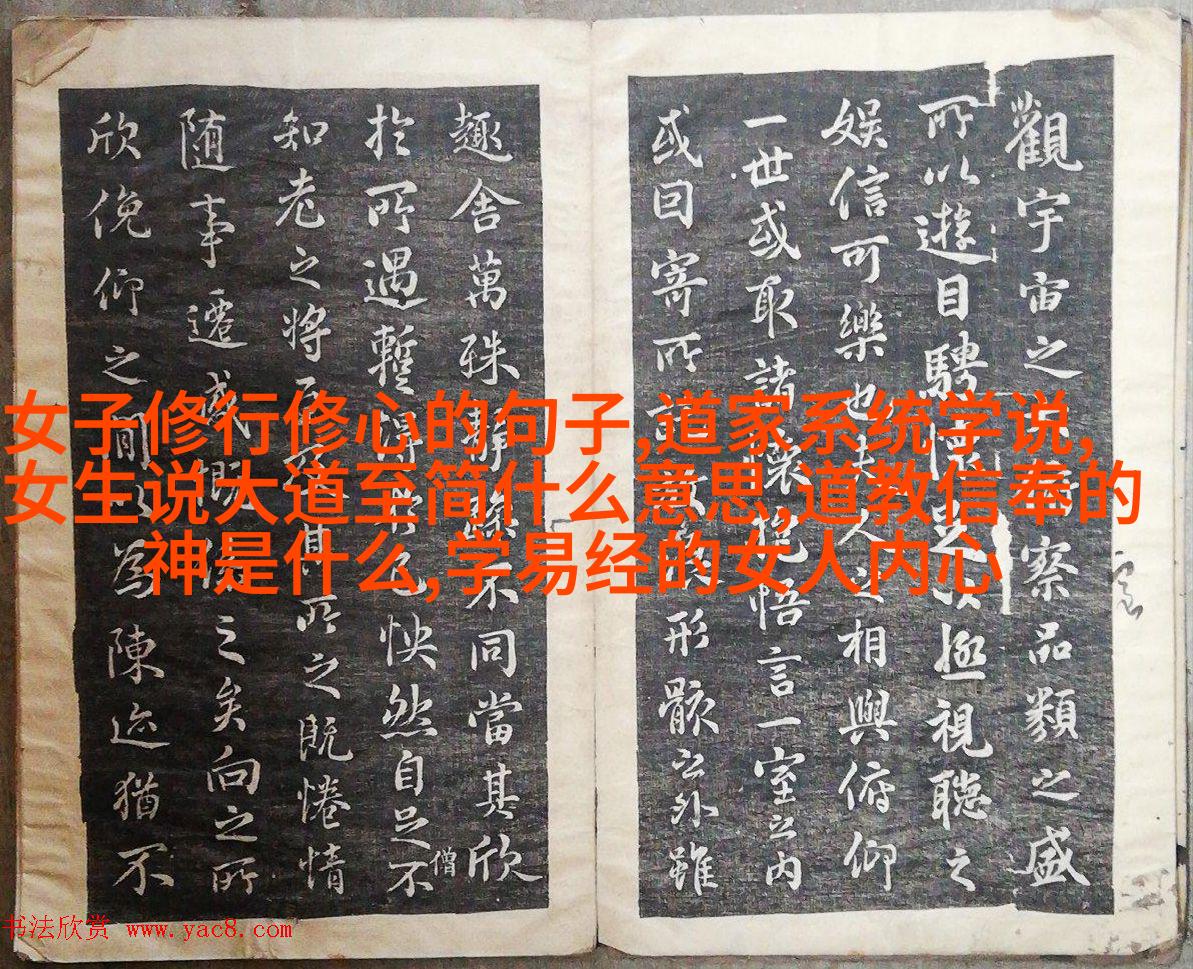 觀宇宙之察品類之盛
所以遊目騁懷足以極視聽之
娛信可樂也夫人之相與俯仰
一世或取諸懷抱悟言一室之內
或因寄所形骸之外雖
趣舍萬殊靜躁不同當其欣
僧
於所遇暫得於己怏然自足不
知老之將至及其所之既惓情
隨事遷感慨係之矣向之所
欣俛仰之間以為陳迹猶不
女子修行修心的句子,道家系统学说,
女生说大道至简什么意思,道教信奉的
神是什么,学易经的女人内心
书法欣赏 www.yac8.com